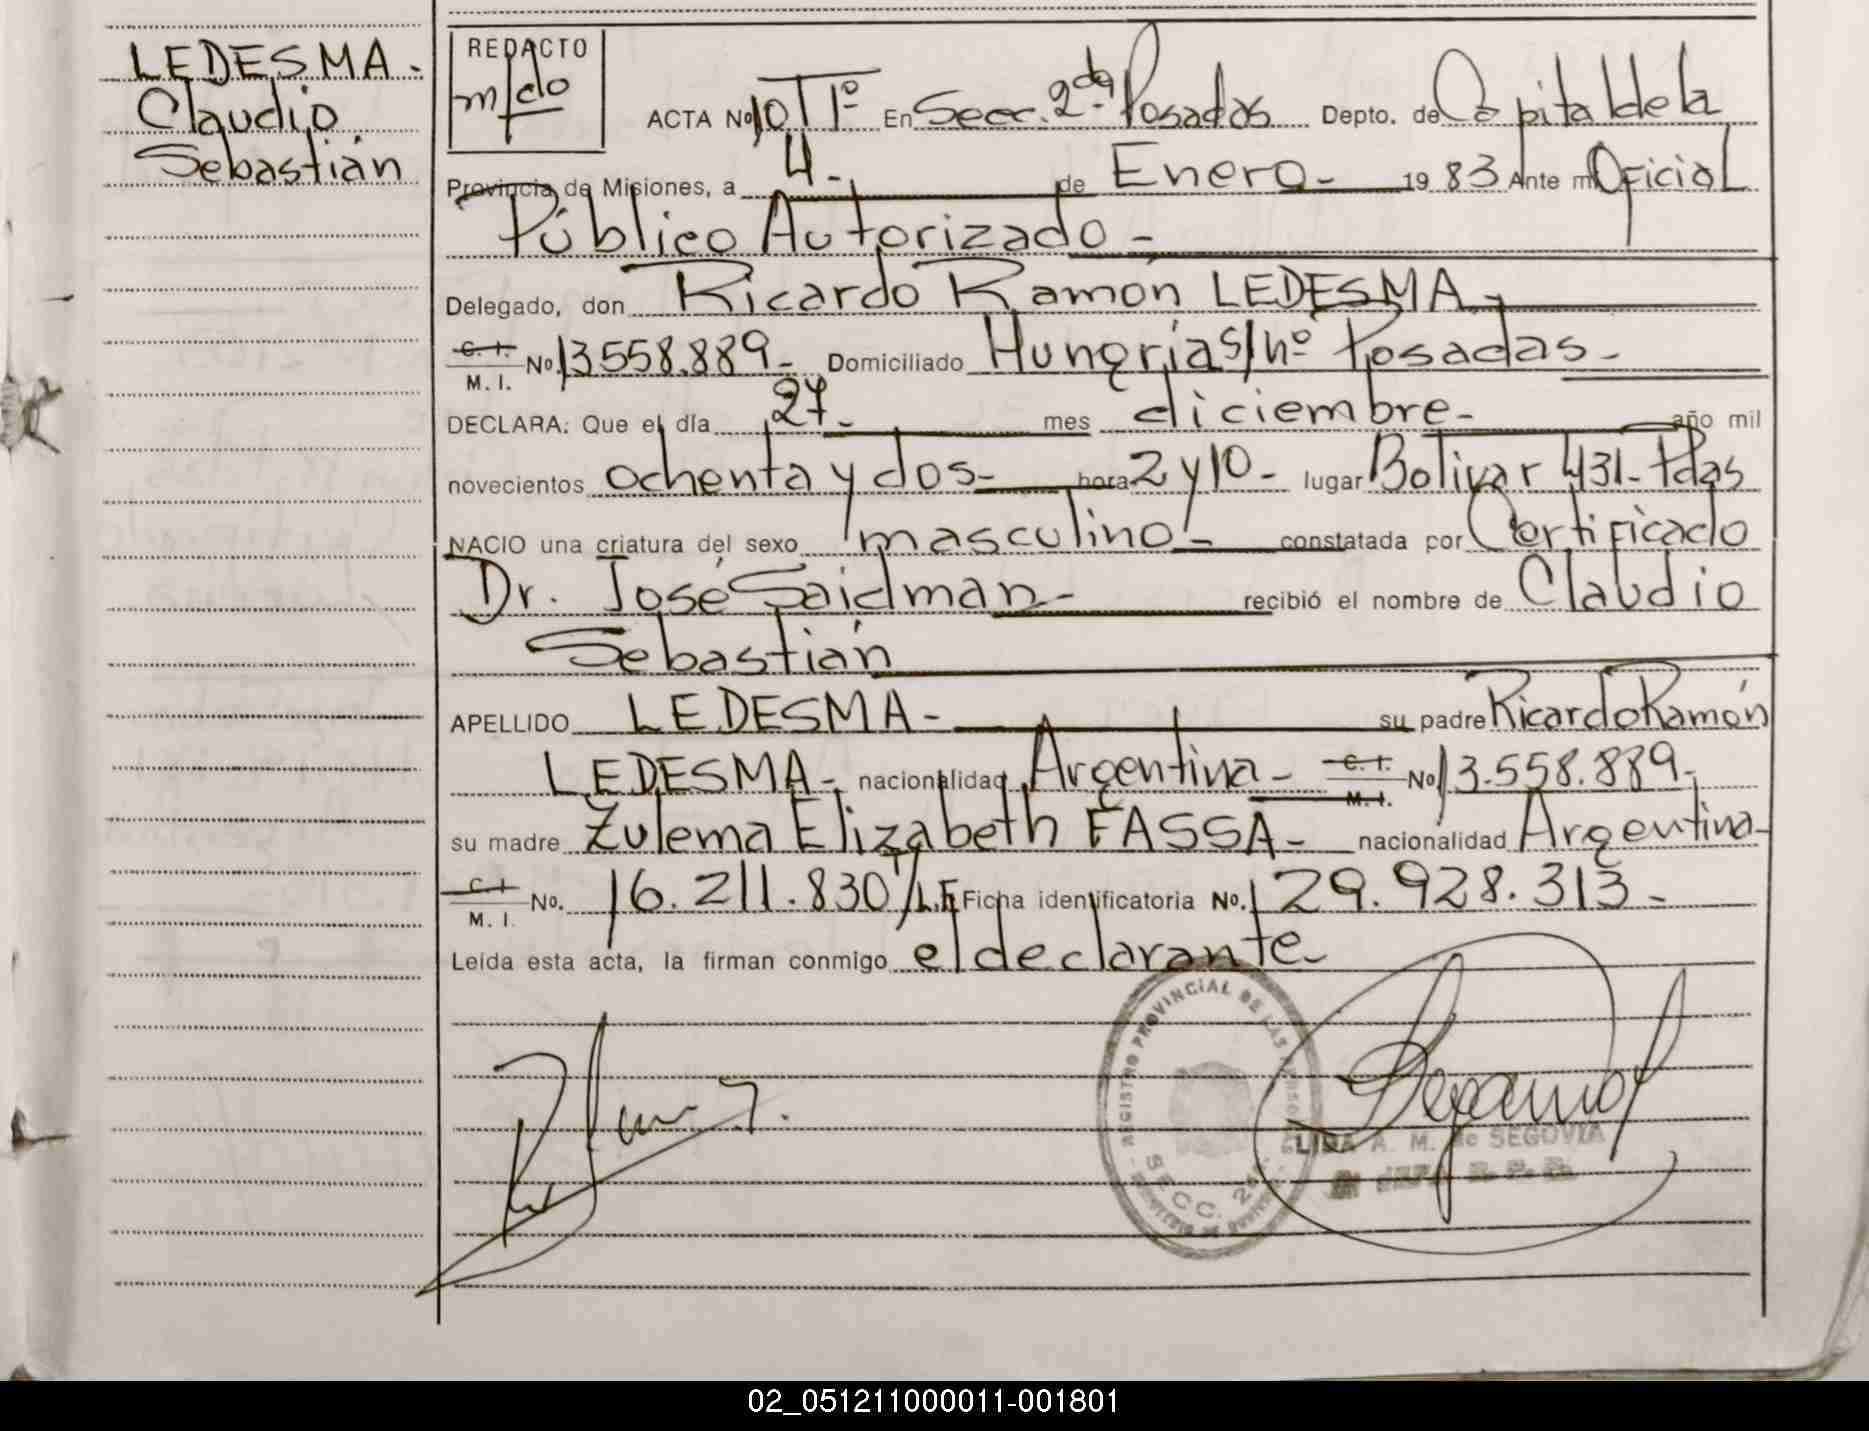 LEDESMA-
Claudio
Sebastián
REDACTO
mfdo
ACTA No 10 T 1º En Secc. 2da Posadas Depto. de Capital de la
Provincia de Misiones, a 4- de Enero- 1983 Ante mi Oficial
Público Autorizado-
Delegado, don Ricardo Ramón LEDESMA-
C. I. M. I. No. 13558.889- Domiciliado Hungría s/nº Posadas-
DECLARA: Que el día 27- mes diciembre- año mil
novecientos ochenta y dos- hora 2 y 10- lugar Bolivar 431- Pdas
NACIO una criatura del sexo masculino- constatada por Certificado
Dr. José Saidman- recibió el nombre de Claudio
Sebastián
APELLIDO LEDESMA- su padre Ricardo Ramón
LEDESMA- nacionalidad Argentina- C. I. M. I. No 13.558.889-
su madre Zulema Elizabeth FASSA- nacionalidad Argentina-
C. I. M. I. No. 16.211.830 Ficha identificatoria No. 29.928.313-
Leída esta acta, la firman conmigo el declarante-
REGISTRO PROVINCIAL DE LAS PERSONAS
SECC. 2da.
LIDA A. M. de SEGOVIA
02_051211000011-001801